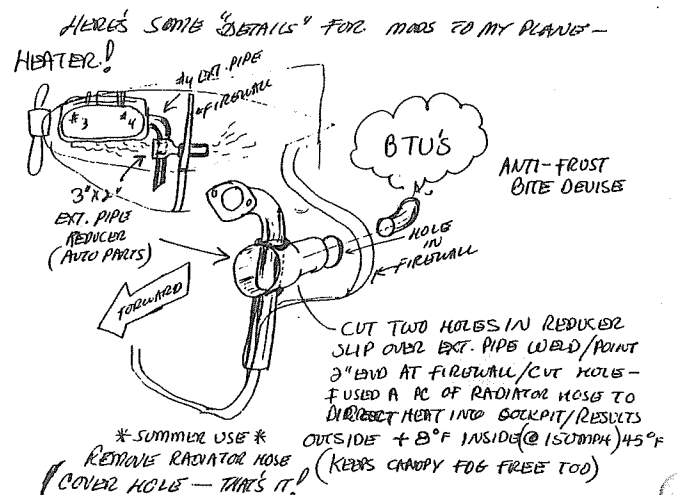 HERE'S SOME "DETAILS" FOR MODS TO MY PLANE-
HEATER!
#4 EXT. PIPE
FIREWALL
#3 #4
BTU'S
ANTI-FROST
BITE DEVISE
3"X2"
EXT. PIPE
REDUCER
(AUTO PARTS)
HOLE
IN
FIREWALL
FORWARD
CUT TWO HOLES IN REDUCER
SLIP OVER EXT. PIPE WELD/POINT
2" END AT FIREWALL/CUT HOLE-
I USED A PC OF RADIATOR HOSE TO
DIRRECT HEAT INTO COCKPIT/RESULTS
OUTSIDE +8°F INSIDE (@ 150MPH) 45°F
(KEEPS CANOPY FOG FREE TOO)
*SUMMER USE*
REMOVE RADIATOR HOSE
COVER HOLE - THAT'S IT!